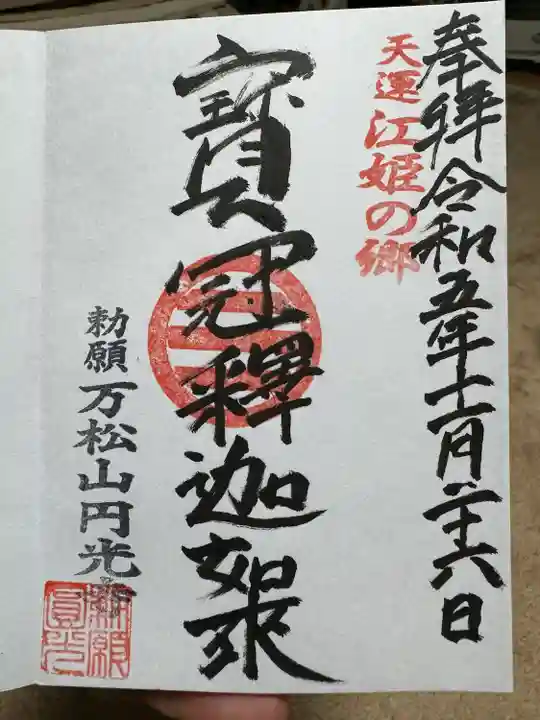 奉拝令和五年十一月二十六日
天運江姫の郷
寳冠釋迦如来
勅願万松山円光寺
勅願
圓光